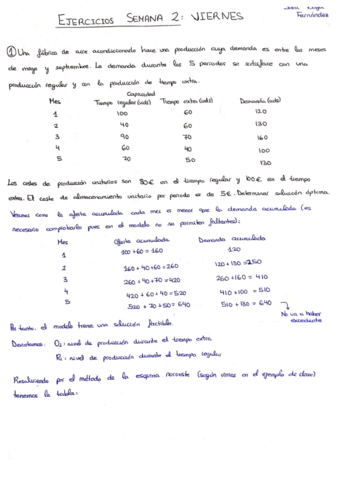 Fernández
EJERCICIOS SEMANA 2: VIERNES
① Una fábrica de aire acondicionado hace una producción cuya demanda es entre los meses
de mayo y septiembre. La demanda durante los 5 periodos se satisface con una
producción regular y con la producción de tiempo extra.
Capacidad
Mes Tiempo regular (uds) Tiempo extra (uds) Demanda (uds)
1 100 60 120
2 40 60 130
3 90 70 160
4 60 40 100
5 70 50 130
Los costes de producción unitarios son 80€ en el tiempo regular y 100€ en el tiempo
extra. El coste de almacenamiento unitario por periodo es de 5€. Determinar solución óptima.
Veamos como la oferta acumulada cada mes es menor que la demanda acumulada (es
necesario comprobarlo pues en el modelo no se permiten faltantes):
Mes Oferta acumulada Demanda acumulada
1 100 + 60 = 160 120
2 160 + 40 + 60 = 260 120 + 130 = 250
3 260 + 90 + 70 = 420 260 + 160 = 410
4 420 + 60 + 40 = 520 410 + 100 = 510
5 520 + 70 + 50 = 640 510 + 130 = 640
No va a haber
excedente
Por tanto, el modelo tiene una solución factible.
Denotamos: Oi: nivel de producción durante el tiempo extra
Ri: nivel de producción durante el tiempo regular
Resolviendo por el método de la esquina noroeste (según vimos en el ejemplo de clase)
tenemos la tabla: